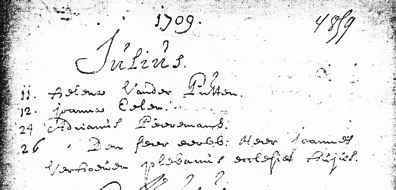 1709. 4859
Julius.
11. Helena Vander Putten.
12. Joanna Eelen.
24 Adrianus Peeremans.
26 Den heer eerw: Heer Joannes
Verhoeven plebanus ecclesiæ hujus.